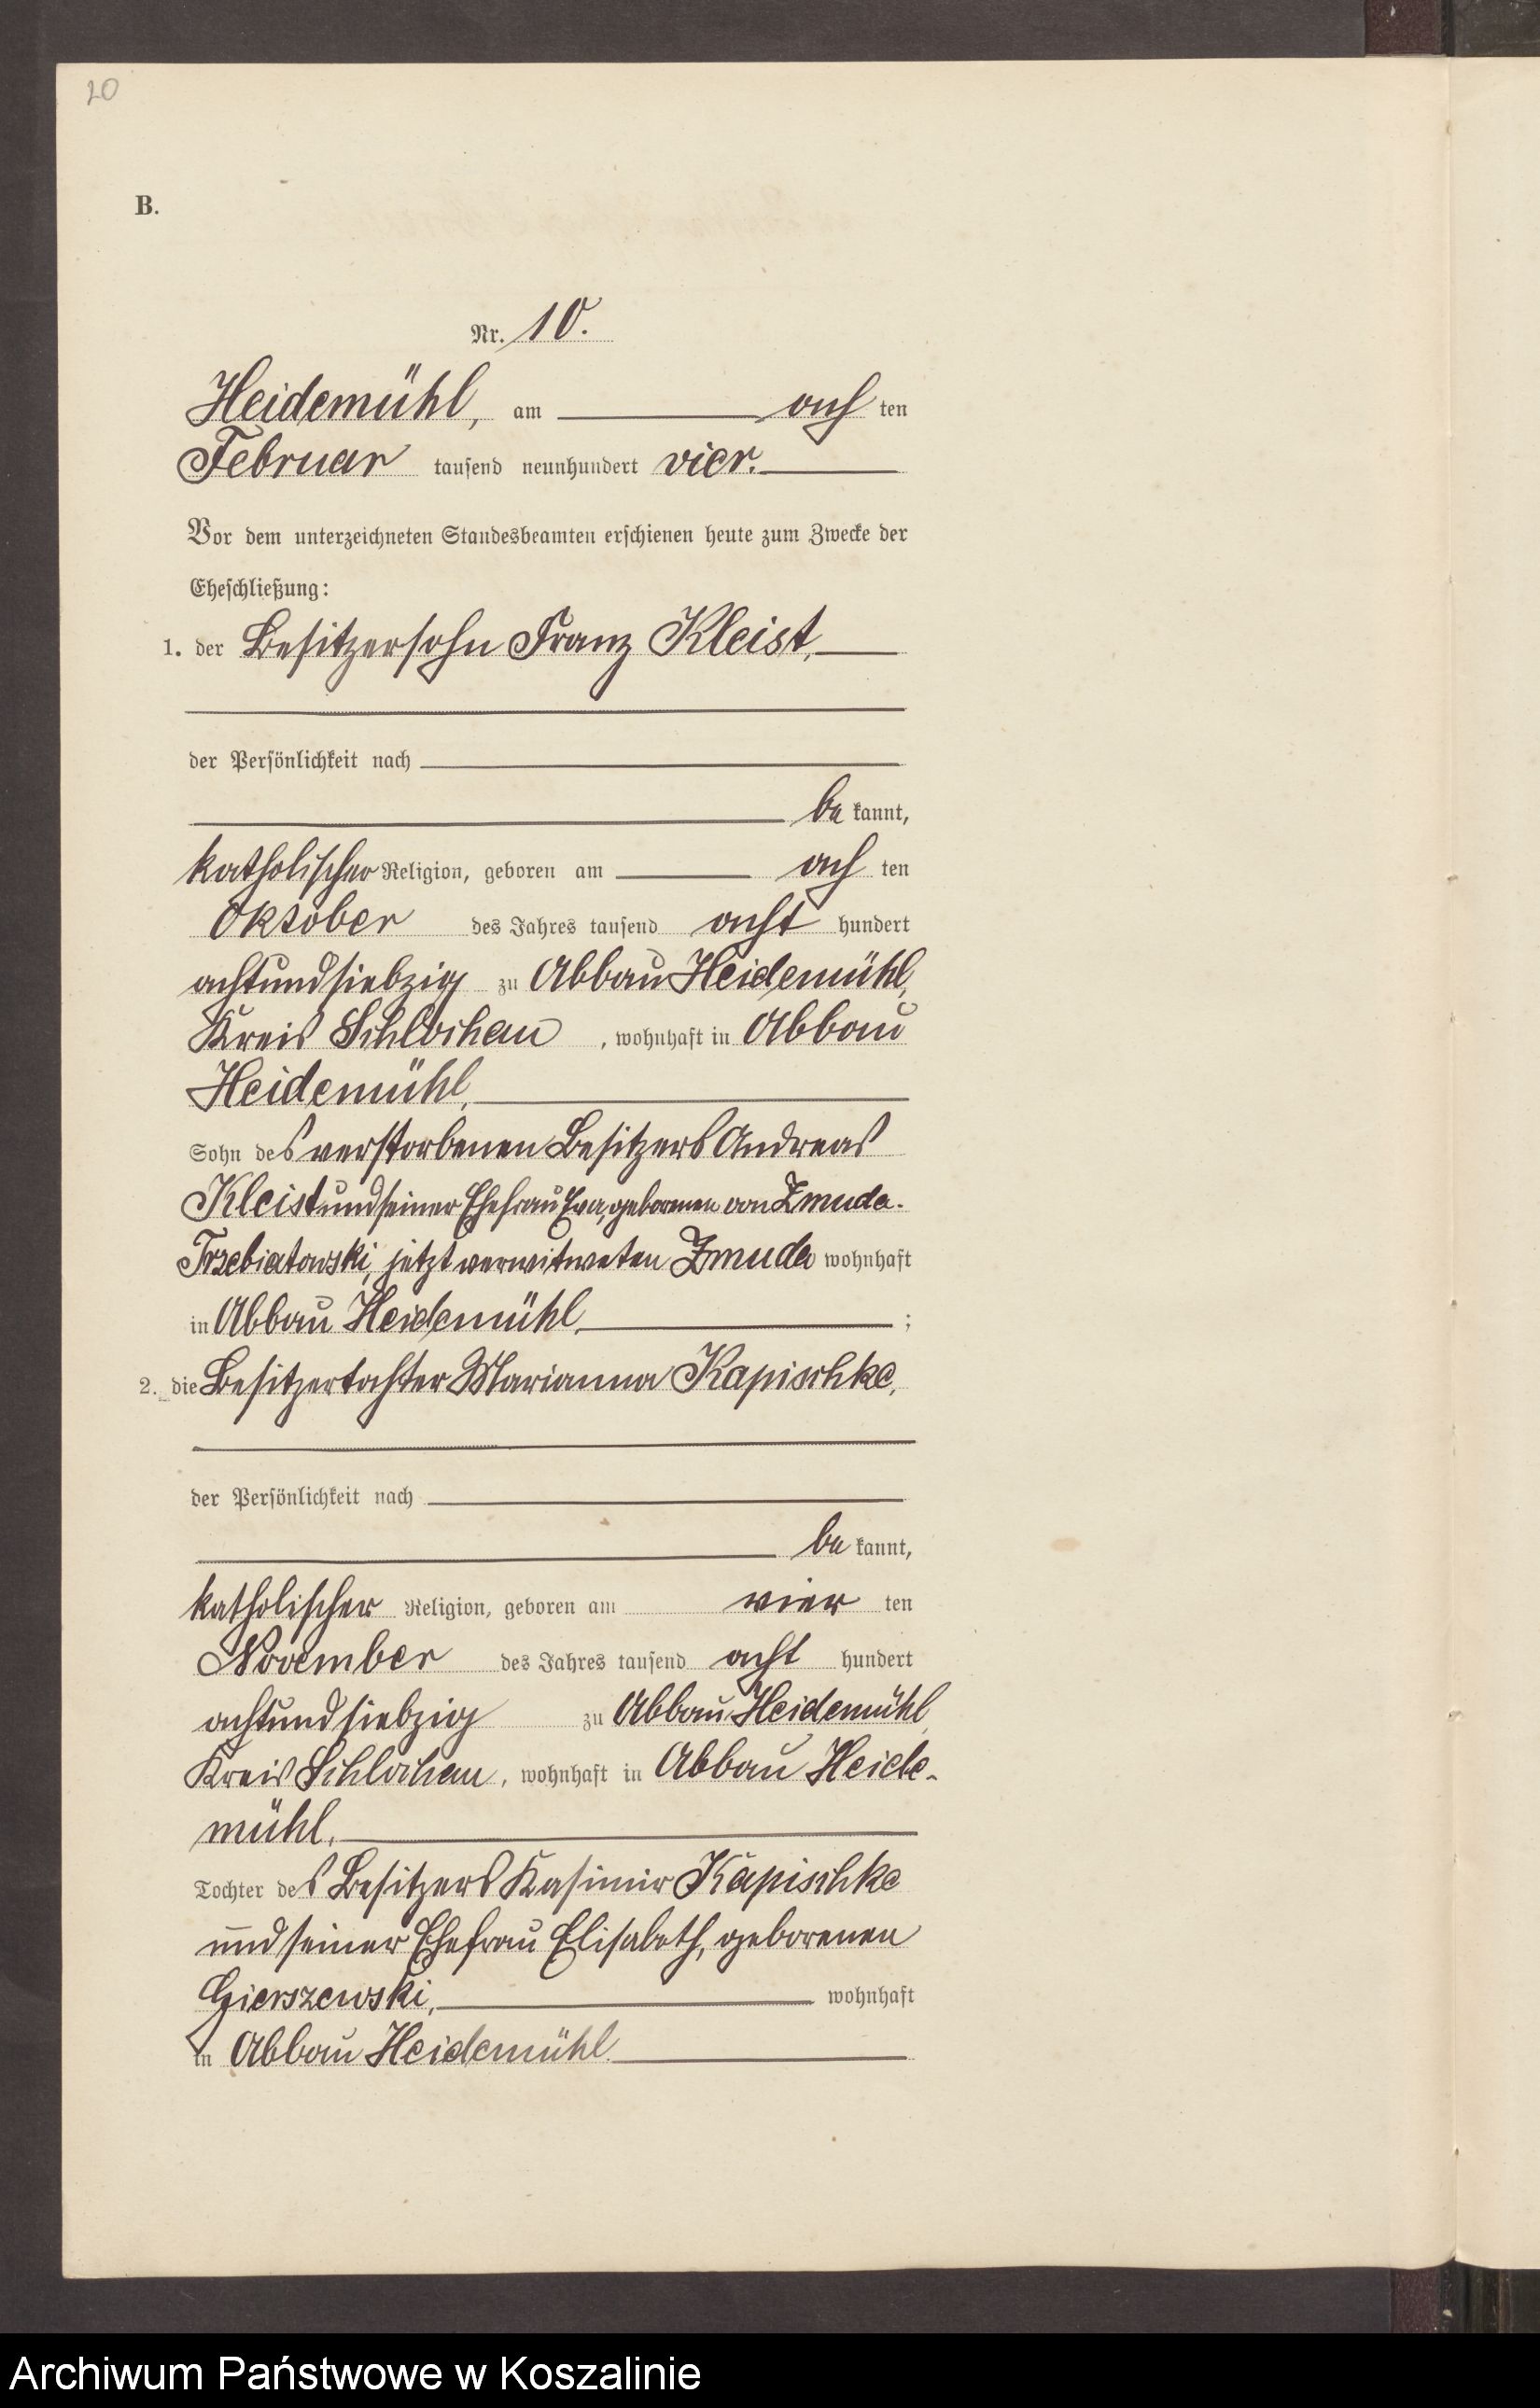 20
B.
Nr. 10.
Heidemühl, am ach ten
Februar tausend neunhundert vier.
Vor dem unterzeichneten Standesbeamten erschienen heute zum Zwecke der
Eheschließung:
1. der Besitzersohn Franz Kleist,
der Persönlichkeit nach
be kannt,
katholischer Religion, geboren am ach ten
Oktober des Jahres tausend acht hundert
achtundsiebzig zu Abbau Heidemühl,
Kreis Schlochau, wohnhaft in Abbau
Heidemühl,
Sohn des verstorbenen Besitzers Andreas
Kleist und seiner Ehefrau Eva, geborenen von Zmuda-
Trzebiatowski, jetzt verwitweten Zmuda wohnhaft
in Abbau Heidemühl ;
2. die Besitzertochter Marianna Kapischke,
der Persönlichkeit nach
be kannt,
katholischer Religion, geboren am vier ten
November des Jahres tausend acht hundert
achtundsiebzig zu Abbau Heidemühl
Kreis Schlochau, wohnhaft in Abbau Heide-
mühl,
Tochter des Besitzers Kasimir Kapischke
und seiner Ehefrau Elisabeth, geborenen
Gierszewski, wohnhaft
in Abbau Heidemühl.
Archiwum Państwowe w Koszalinie